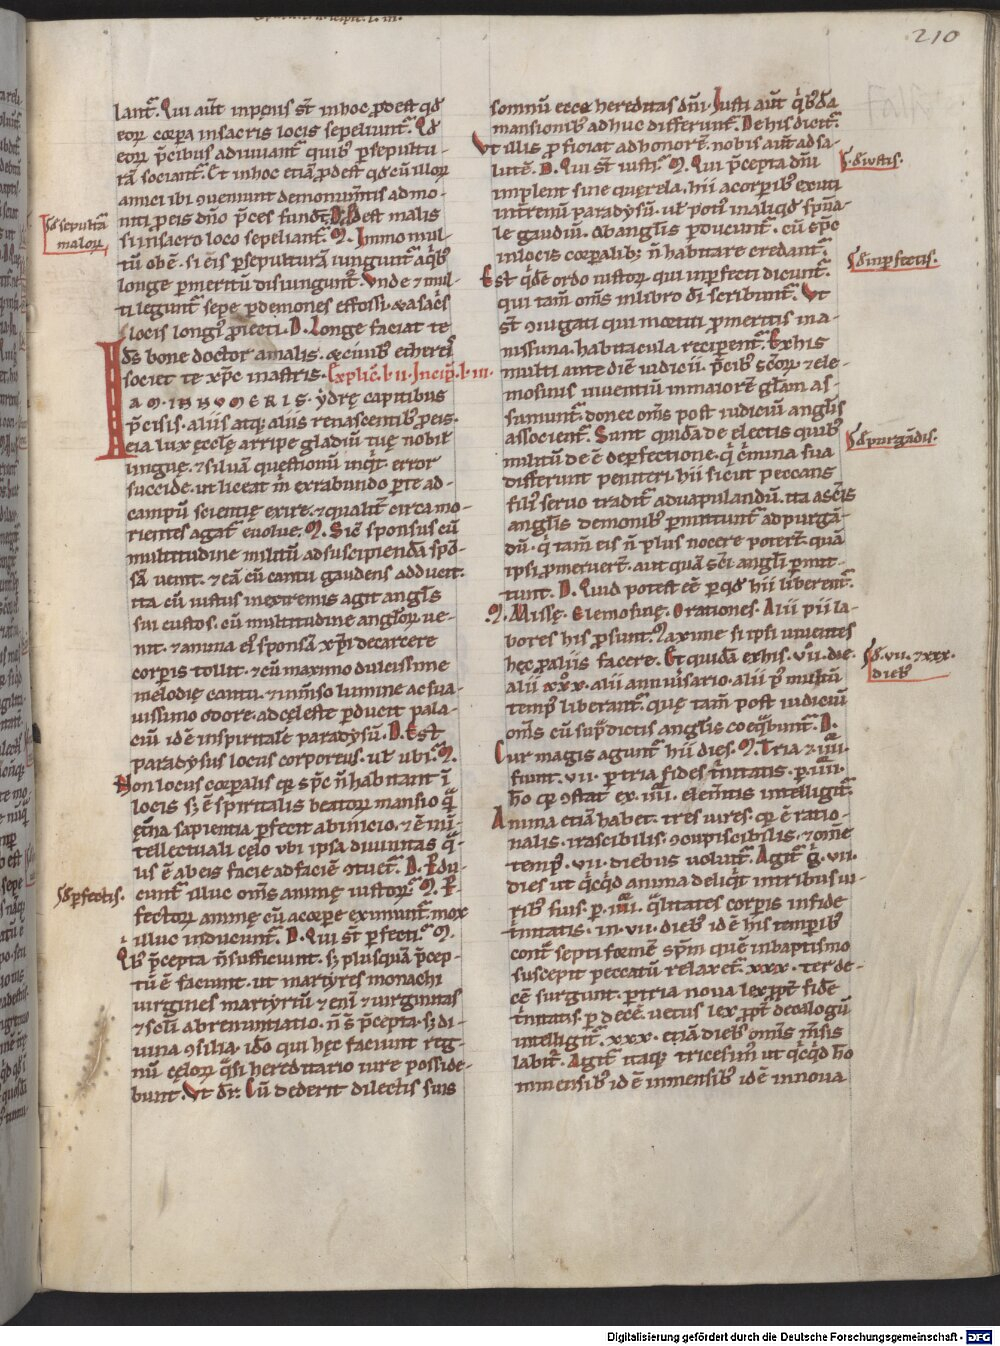 210
lant᷑. Qui aut̄ inpęnis st̄ inhoc ꝓdest qđ
eoꝝ corpora insacris locis sepeliunt᷑. Qđ
eoꝝ p̄cibus adiuuant᷑ quibꝰ ꝑsepultu-
rā sociant᷑. Et inhoc etiā ꝓdest qđ cū illoꝝ
amici ibi ɔueniunt demonum̄tis admo-
niti ꝓeis dn̄o p̄ces fundt̄. D. Obest malis
si insacro loco sepeliant᷑. M. Immo mul-
tū obē. si eis ꝑsepulturā iungunt᷑ aq̇bꝰ
longe ꝑmeritū disiungunt᷑. Vnde & mul-
ti legunt᷑ sepe ademones effossi. & asac̄s
locis longiꝰ ꝓiecti. D. Longe faciat te
dſ̄ bone doctor amalis. & ciuibꝰ ethereiſ
societ te xp̄c inastris. Explic̄. l. ii. Incip̄. l. iii.
IAM. INNVMERIS. ydrę capitibus
p̄cisis. aliis atq; aliis renascentibꝰ ꝓeis.
eia lux ęcclę arripe gladiū tuę nobil̄
linguę. & siluā questionū inq̇t᷑ error
succide. ut liceat m̄ exrabundo ꝑte ad-
campū scientię exire. & qualit̄ circa mo-
rientes agat᷑ euolue. M. Sic̄ sponsus cū
multitudine militū adsuscipiendā spō-
sā uenit. & eā cū cantu gaudens adducit.
ita cū iustus inextremis agit angl̄s
sui custos. cū multitudine angl̄oꝝ ue-
nit. & anima eiꝰ sponsā xp̄i decarcere
corpis tollit. & cū maximo dulcissime
melodię cantu. & inm̄so lumine ac sua-
uissimo odore. adcęleste ꝑducit pala-
ciū id ē inspiritale paradysū. D. Est
paradysus locus corporeus. ut̄ ubi. M.
Non locus corporalis qr sp̄c n̄ habitant ī
locis sꝫ ē spiritalis beatoꝝ mansio q̄
ęt̄na sapientia ꝑfecit abinicio. & ē inī
tellectuali cęlo ubi ipsa diuinitas q̄
us ē abeis facie adfaciē ɔtuet᷑. D. Ꝑdu-
cunt᷑ illuc oms̄ animę iustoꝝ. M. Ꝑ-
fectoꝝ animę cū acorpore eximunt᷑ mox
illuc inducunt᷑. D. Qui st̄ ꝑfecti. M.
Qibꝰ p̄cepta n̄sufficiunt. sꝫ plusquā p̄cep-
tū ē faciunt. ut martyres monachi
uirgines martyriū & eni & uirginitas
& sc̄li abrenuntiatio. n̄ s̄ p̄cepta. sꝫ di-
uina ɔsilia. idō qui hęc faciunt reg-
nū cęloꝝ q̄si hereditario iure posside-
bunt. Vt dr̄. Cū dederit dilectis suis
somnū ecce hereditas dn̄i. Iusti aut̄ q̇bꝰdā
mansionibꝰ adhuc differunt᷑. De his dicit᷑.
Vt illis ꝓficiat adhonorē. nobis aut̄ adsa-
lutē. D. Qui st̄ iusti. M. Qui p̄cepta dn̄i
implent sine quęrela. hii acorꝑibꝰ exuti
int̄renū paradysū. ut̄ potiꝰ inaliqđ sp̄ita-
le gaudiū. abanglis ꝑducunt᷑. cū sp̄c
inlocis corꝑalibꝫ n̄ habitare credant᷑.
Est q̇dē ordo iustoꝝ. qui inꝑfecti dicunt᷑.
qui tam̄ oms̄ inlibro dī scribunt᷑. Vt
st̄ ɔiugati qui moetiti ꝓmeritis in a-
nissima. habitacula recipient᷑. Ex his
multi ante diē iudicii. p̄cibꝰ sc̄oꝝ & ele-
mosinis uiuentiū inmaiorē gl̄am as-
sumunt᷑. donec oms̄ post iudiciū anglis
associent᷑. Sunt quidā de electis quibꝰ
multū de ē deꝑfectione. q̇ c̄mina sua
differunt peniteri. hii sicut peccans
filiꝰ seruo tradit᷑ aduapulandū. ita asc̄is
angl̄is demonibꝰ ꝑmittunt᷑ adpurgā-
dū. q̇ tam̄ eis n̄ plus nocere poterī. quā
ipsi ꝓmeruerī. aut quā sc̄i angl̄i ꝑmit-
tunt. D. Quid potest eē ꝑ qđ hii liberent᷑.
M. Missę. Elemosinę. Orationes. Alii pii la-
bores his ꝓsunt. Maxime si ipsi uiuentes
hęc ꝓaliis facere. Et quidā exhis. vii. die.
alii xxx. alii anniuersario. alii p̄ multū
tempꝰ liberant᷑. que tam̄ post iudiciū
oms̄ cū sup̄dictis anglis coeq̄bunt᷑. D.
Cur magis agunt᷑ hii dies. M. Tria & iiii.
fiunt. vii. ꝑ tria fides t̄nitatis. ꝑ. iiii.
hō qr ɔstat ex. iiii. elem̄tis intelligit᷑.
Anima etiā habet. tres uires. qr ē ratio-
nalis. irascibilis. ɔcupiscibilis. & om̄e
tempꝰ. vii. diebus uoluit᷑. Agit᷑ ḡ. vii.
dies ut q̇cq̇d anima deliq̇t intribus ui-
ribꝰ suis. ꝑ. iiii. q̄litates corꝑis infide
t̄nitatis. in. vii. diebꝰ id ē his temꝑibꝰ
cont̄ septi formē sp̄m quē inbaptismo
suscepit peccatū relaxet᷑. xxx. ter de-
cē surgunt. ꝑtria noua lex ꝓpt̄ fidē
t̄nitatis. ꝑ decē. uetus lex ꝓpt̄ decalogū
intelligit᷑. xxx. etiā diebꝰ omis m̄sis
labit᷑. Agit᷑ itaq; tricesimꝰ ut q̇cq̇d hō
inmensibꝰ id ē inmensibꝰ id ē innoua
De sepultura
maloꝝ.
De ꝑfectis.
De iustis.
De inꝑfectis.
De purgādis.
De. vii. & xxx.
diebꝰ
Digitalisierung gefördert durch die Deutsche Forschungsgemeinschaft - DFG